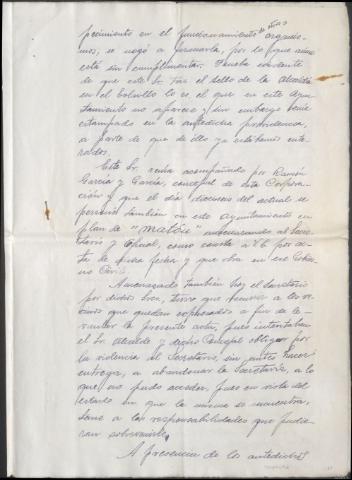 pecimiento en el funcionamiento de otros organis-
mos, se negó a firmarla, por lo que aún
está sin cumplimentar. Prueba evidente
de que este Sr. trae el sello de la Alcaldía
en el bolsillo lo es, el que en este Ayun-
tamiento no aparece y sin embargo viene
estampado en la antedicha providencia,
a parte de que de ello ya estábamos ente-
rados.
Este Sr. venía acompañado por Ramón
García y García, concejal de esta Corpora-
ción y que el día dieciseis del actual se
personó también en este Ayuntamiento en
plan de "matón" amenazando al Secre-
tario y Oficial, como consta a V.E. por ac-
ta de fecha y que obra en ese Gobier-
no Civil.
Amenazado también hoy el Secretario
por dichos Sres, tuvo que llamar a los ve-
cinos que quedan expresados a fin de le-
vantar la presente acta, pues intentaban
el Sr. Alcalde y dicho Concejal obligar por
la violencia al Secretario, sin antes hacer
entrega, a abandonar la Secretaría, a lo
que no pudo acceder, pues en vista del
estado en que la misma se encuentra,
teme a las responsabilidades que pudie-
ran sobrevenirle.
A presencia de los antedichos